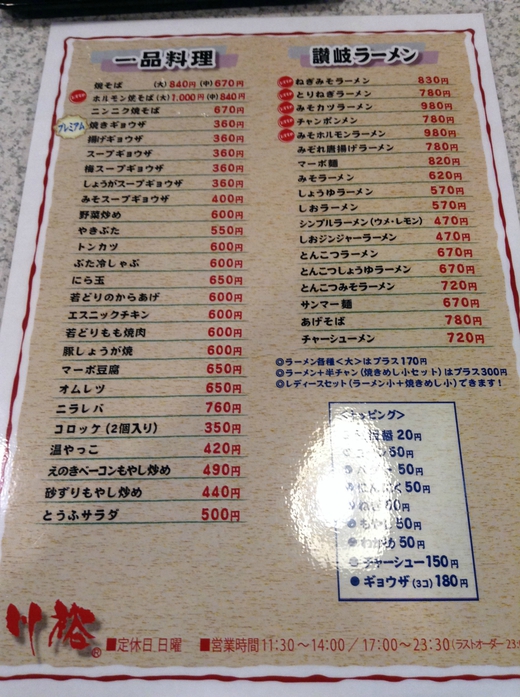 一品料理
焼そば (大)840円(中)670円
ホルモン焼そば(大)1,000円(中)840円
ニンニク焼そば 670円
プレミアム 焼きギョウザ 360円
揚げギョウザ 360円
スープギョウザ 360円
梅スープギョウザ 360円
しょうがスープギョウザ 360円
みそスープギョウザ 400円
野菜炒め 600円
やきぶた 550円
トンカツ 600円
ぶた冷しゃぶ 600円
にら玉 650円
若どりのからあげ 600円
エスニックチキン 600円
若どりもも焼肉 600円
豚しょうが焼 600円
マーボ豆腐 650円
オムレツ 650円
ニラレバ 760円
コロッケ(2個入り) 350円
温やっこ 420円
えのきベーコンもやし炒め 490円
砂ずりもやし炒め 440円
とうふサラダ 500円
讃岐ラーメン
ねぎみそラーメン 830円
とりねぎラーメン 780円
みそカツラーメン 980円
チャンポンメン 780円
みそホルモンラーメン 980円
みぞれ唐揚げラーメン 780円
マーボ麺 820円
みそラーメン 620円
しょうゆラーメン 570円
しおラーメン 570円
シンプルラーメン(ウメ・レモン) 470円
しおジンジャーラーメン 470円
とんこつラーメン 670円
とんこつしょうゆラーメン 670円
とんこつみそラーメン 720円
サンマー麺 670円
あげそば 780円
チャーシューメン 720円
◎ラーメン各種<大>はプラス170円
◎ラーメン+半チャン(焼きめし小セット)はプラス300円
◎レディースセット(ラーメン小+焼きめし小)できます!
<トッピング>
20円
50円
50円
にんにく50円
ねぎ
●もやし50円
●わかめ50円
●チャーシュー150円
●ギョウザ(3コ)180円
裕®
■定休日 日曜 ■営業時間11:30〜14:00/17:00〜23:30(ラストオーダー23: